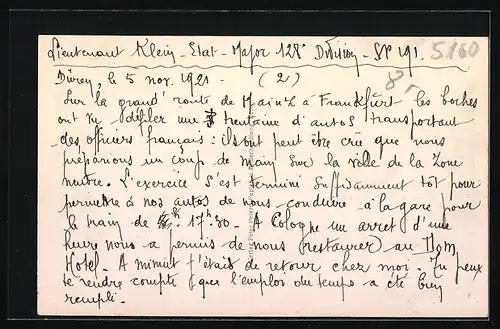 Lieutenant Klein - Etat-Major 128e Division - SP 191.
S160
Düren, le 5 nov. 1921 - (2)
Sur la grand' route de Mainz à Frankfürt les boches
ont vu défiler une trentaine d'autos transportant
des officiers français : ils ont peut être cru que nous
préparions un coup de main sur la ville de la zone
neutre. L'exercice s'est terminé suffisamment tôt pour
permettre à nos autos de nous conduire à la gare pour
le train de 17h30. A Cologne un arret d'une
heure nous a permis de nous restaurer au Dom
Hotel. A minuit j'étais de retour chez moi. Tu peux
te rendre compte que l'emploi du temps a été bien
rempli.